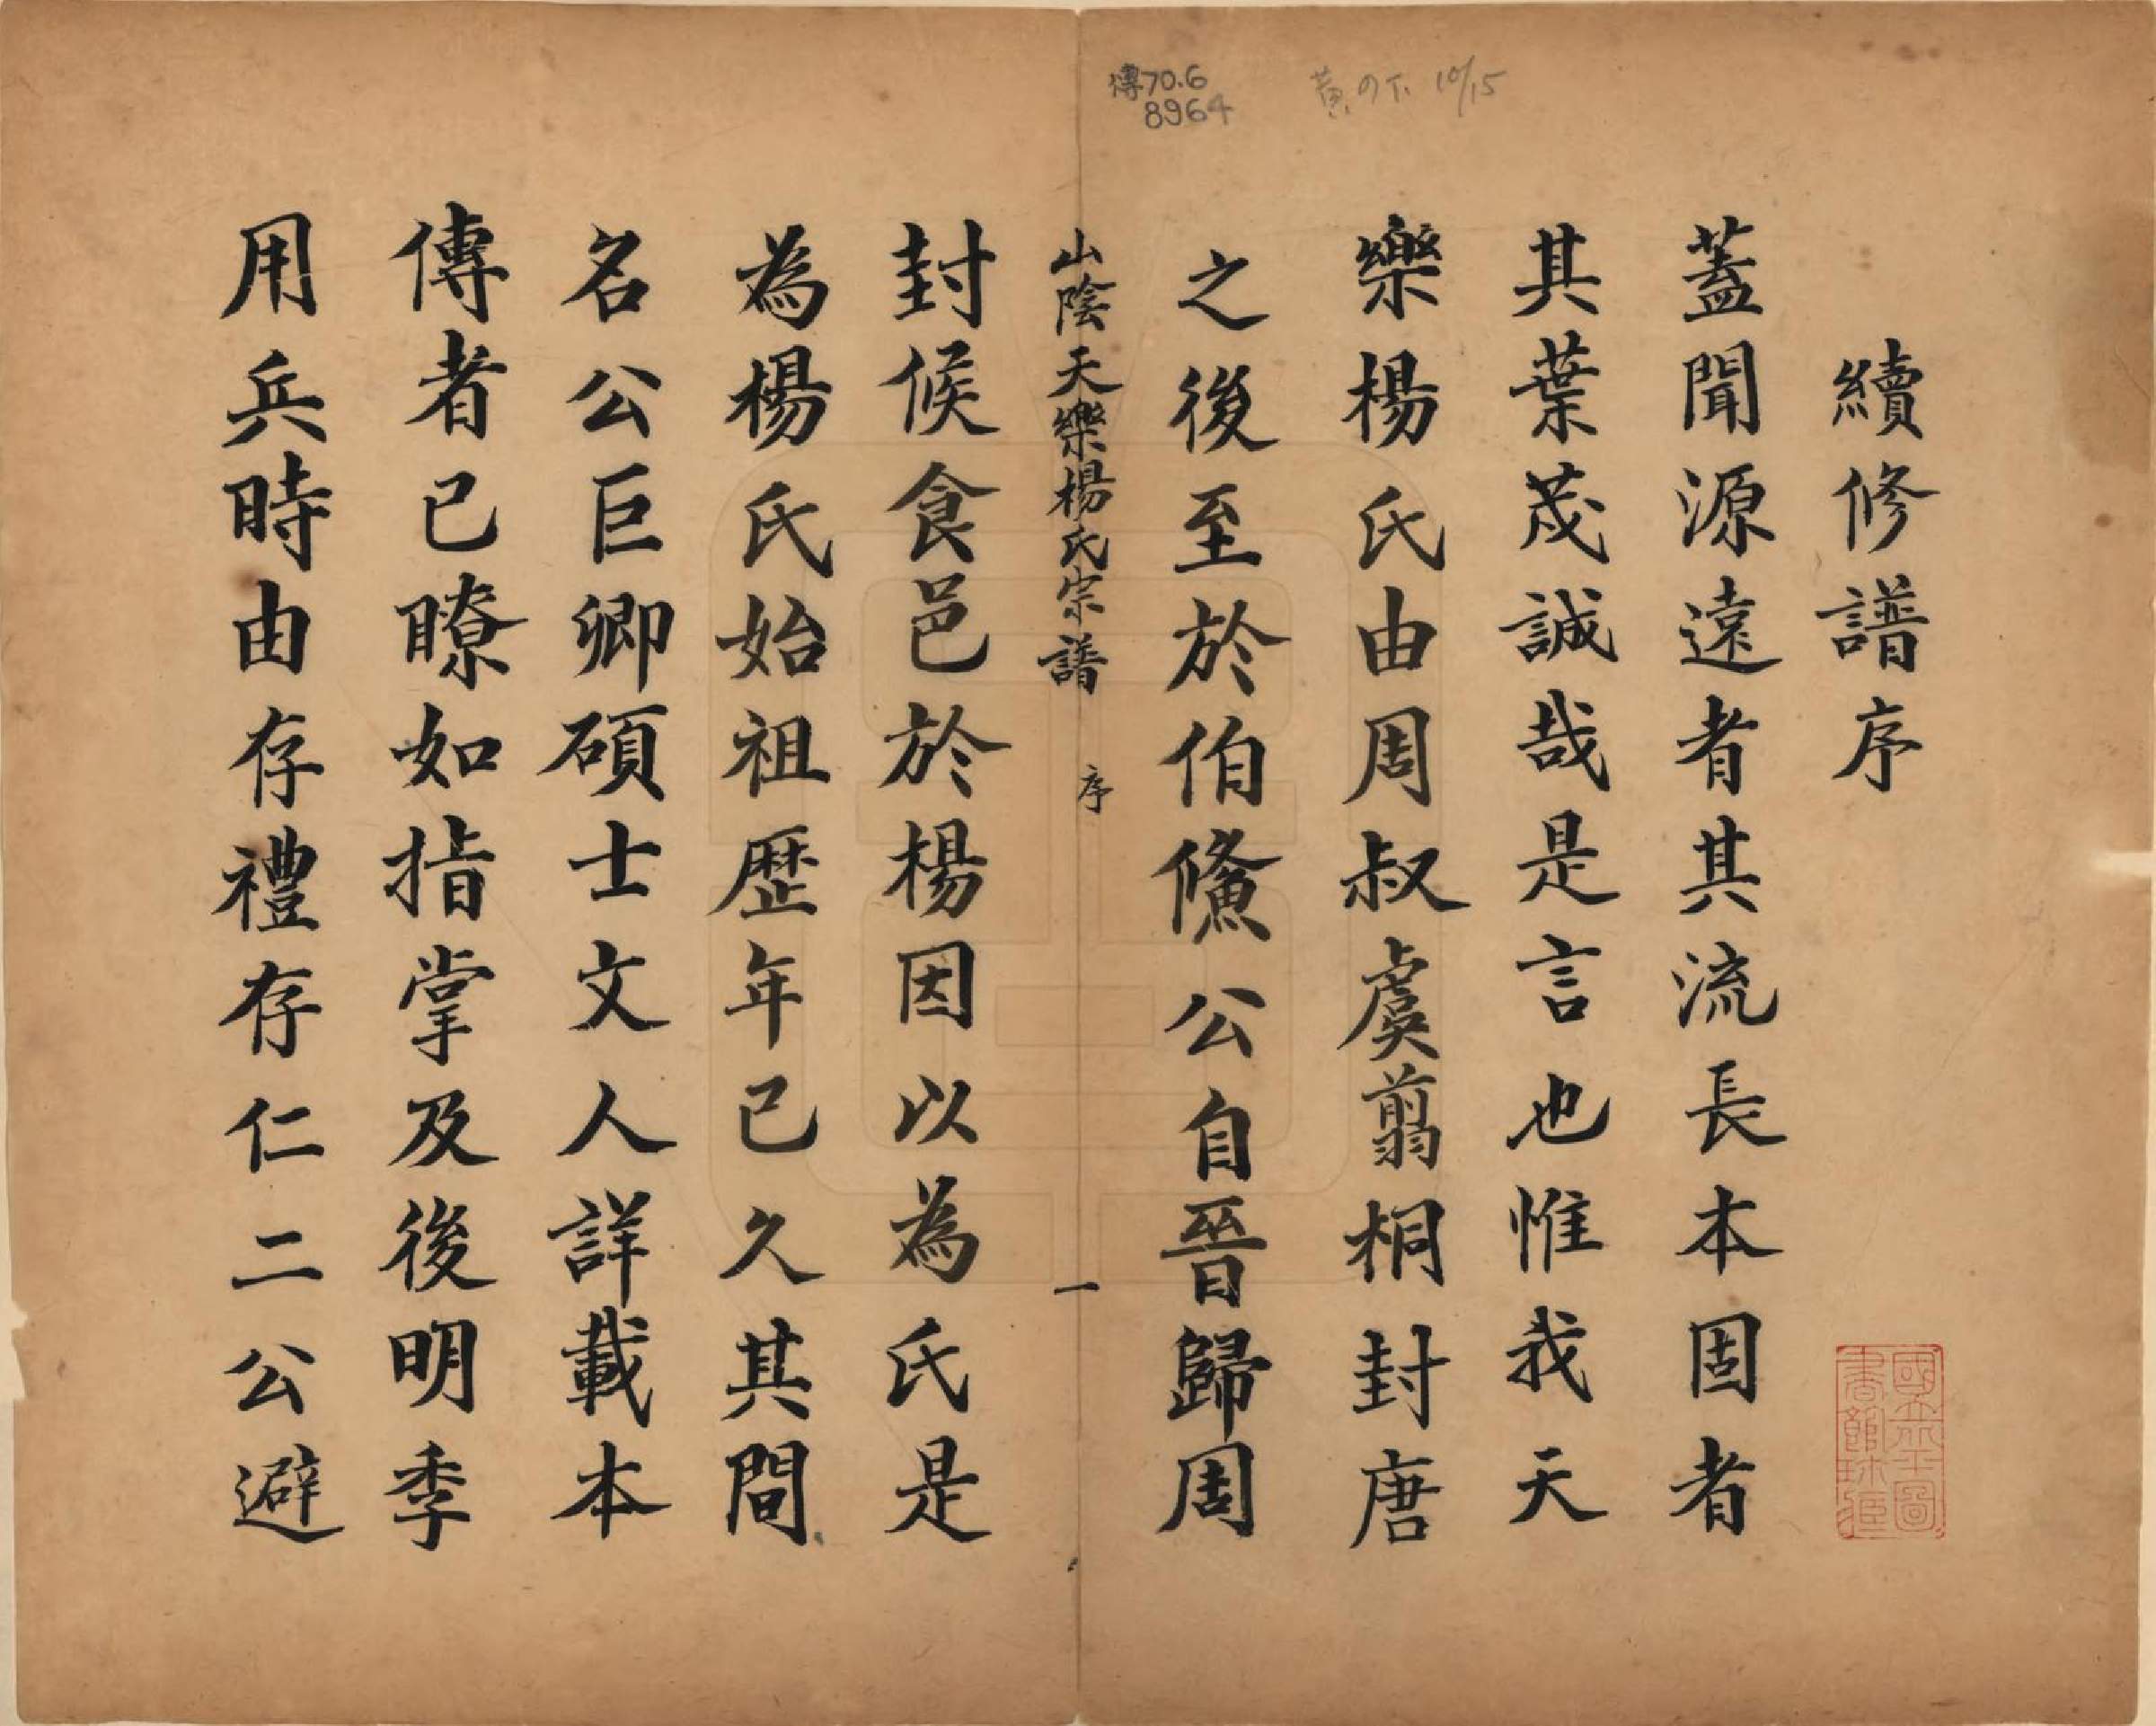 傳70.6
8964
續修譜序
蓋聞源遠者其流長本固者
其葉茂誠哉是言也惟我天
樂楊氏由周叔虞翦桐封唐
之後至於伯僑公自晉歸周
山陰天樂楊氏宗譜 序 一
封候食邑於楊因以為氏是
為楊氏始祖歷年已久其間
名公巨卿碩士文人詳載本
傳者已瞭如指掌及後明季
用兵時由存禮存仁二公避
國立北平圖
書館珍藏